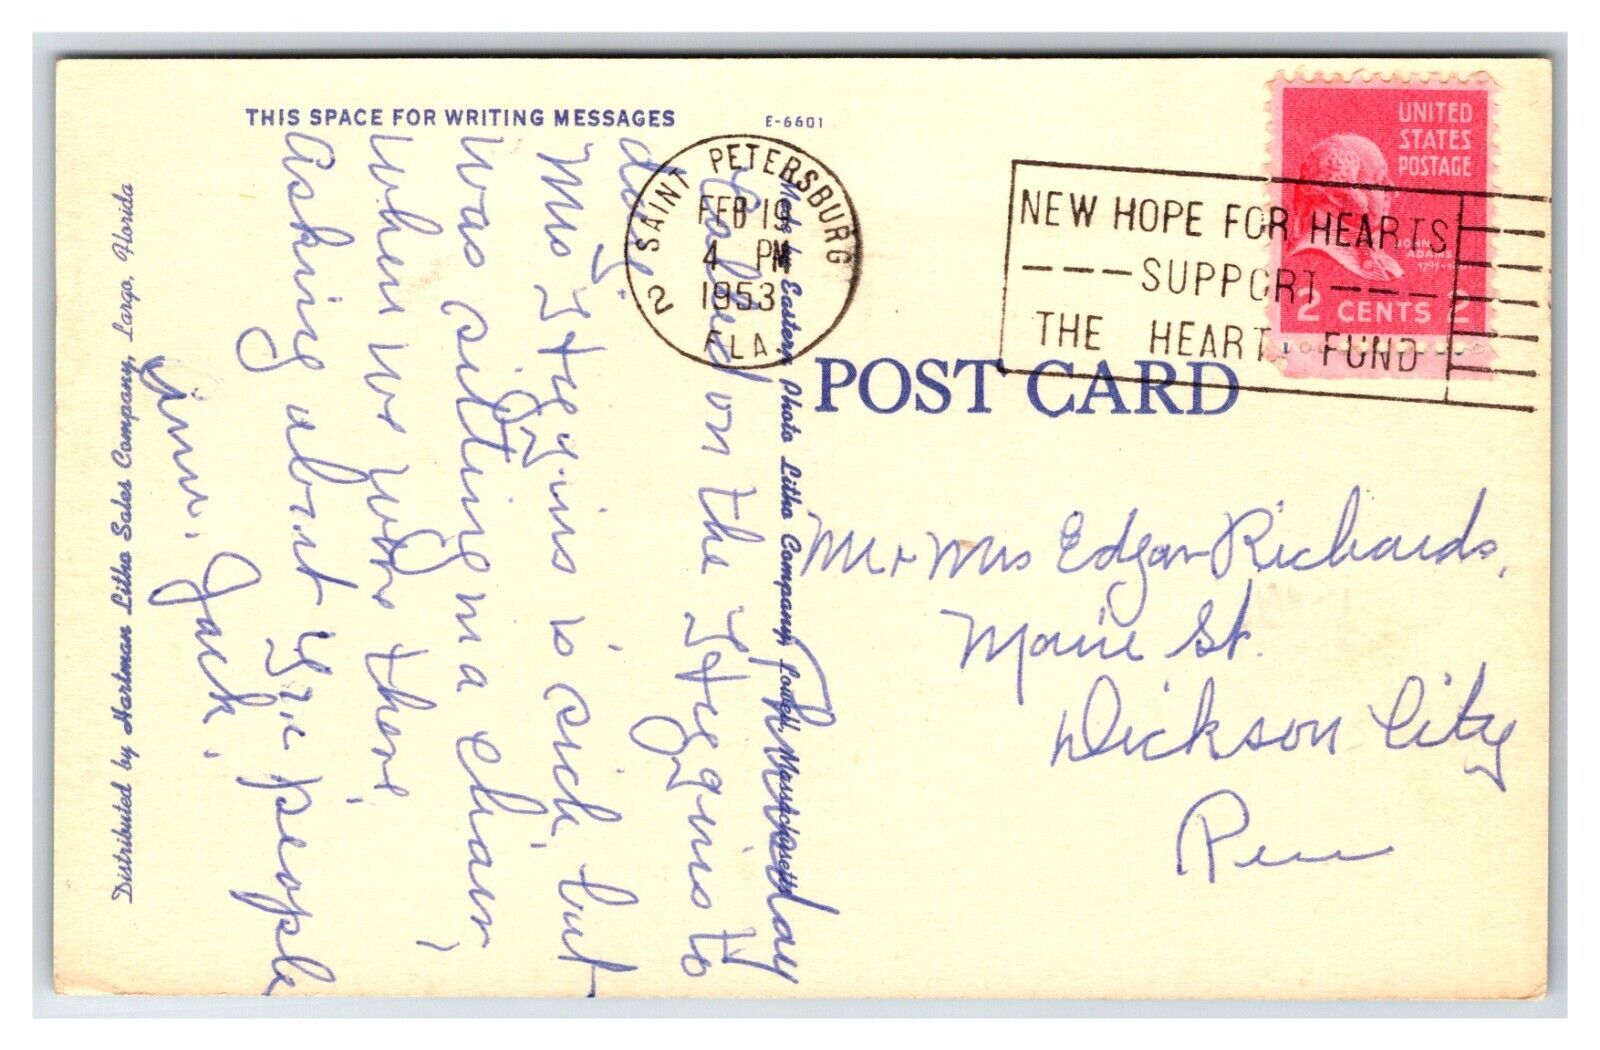 THIS SPACE FOR WRITING MESSAGES
E-6601
SAINT PETERSBURG
FEB 19
4 PM
1953
FLA.
2
NEW HOPE FOR HEARTS
SUPPORT
THE HEART FUND
UNITED
STATES
POSTAGE
JOHN
ADAMS
2 CENTS 2
POST CARD
Mr & Mrs Edgar Richards,
Main St.
Dickson City
Penn
Thursday
Called on the to
day.
Mrs is sick, but
was sitting in a chair,
when we were there,
asking about people
Jack.
Made by Eastern Photo Litho Company, Lowell, Massachusetts
Distributed by Hartman Litho Sales Company, Largo, Florida